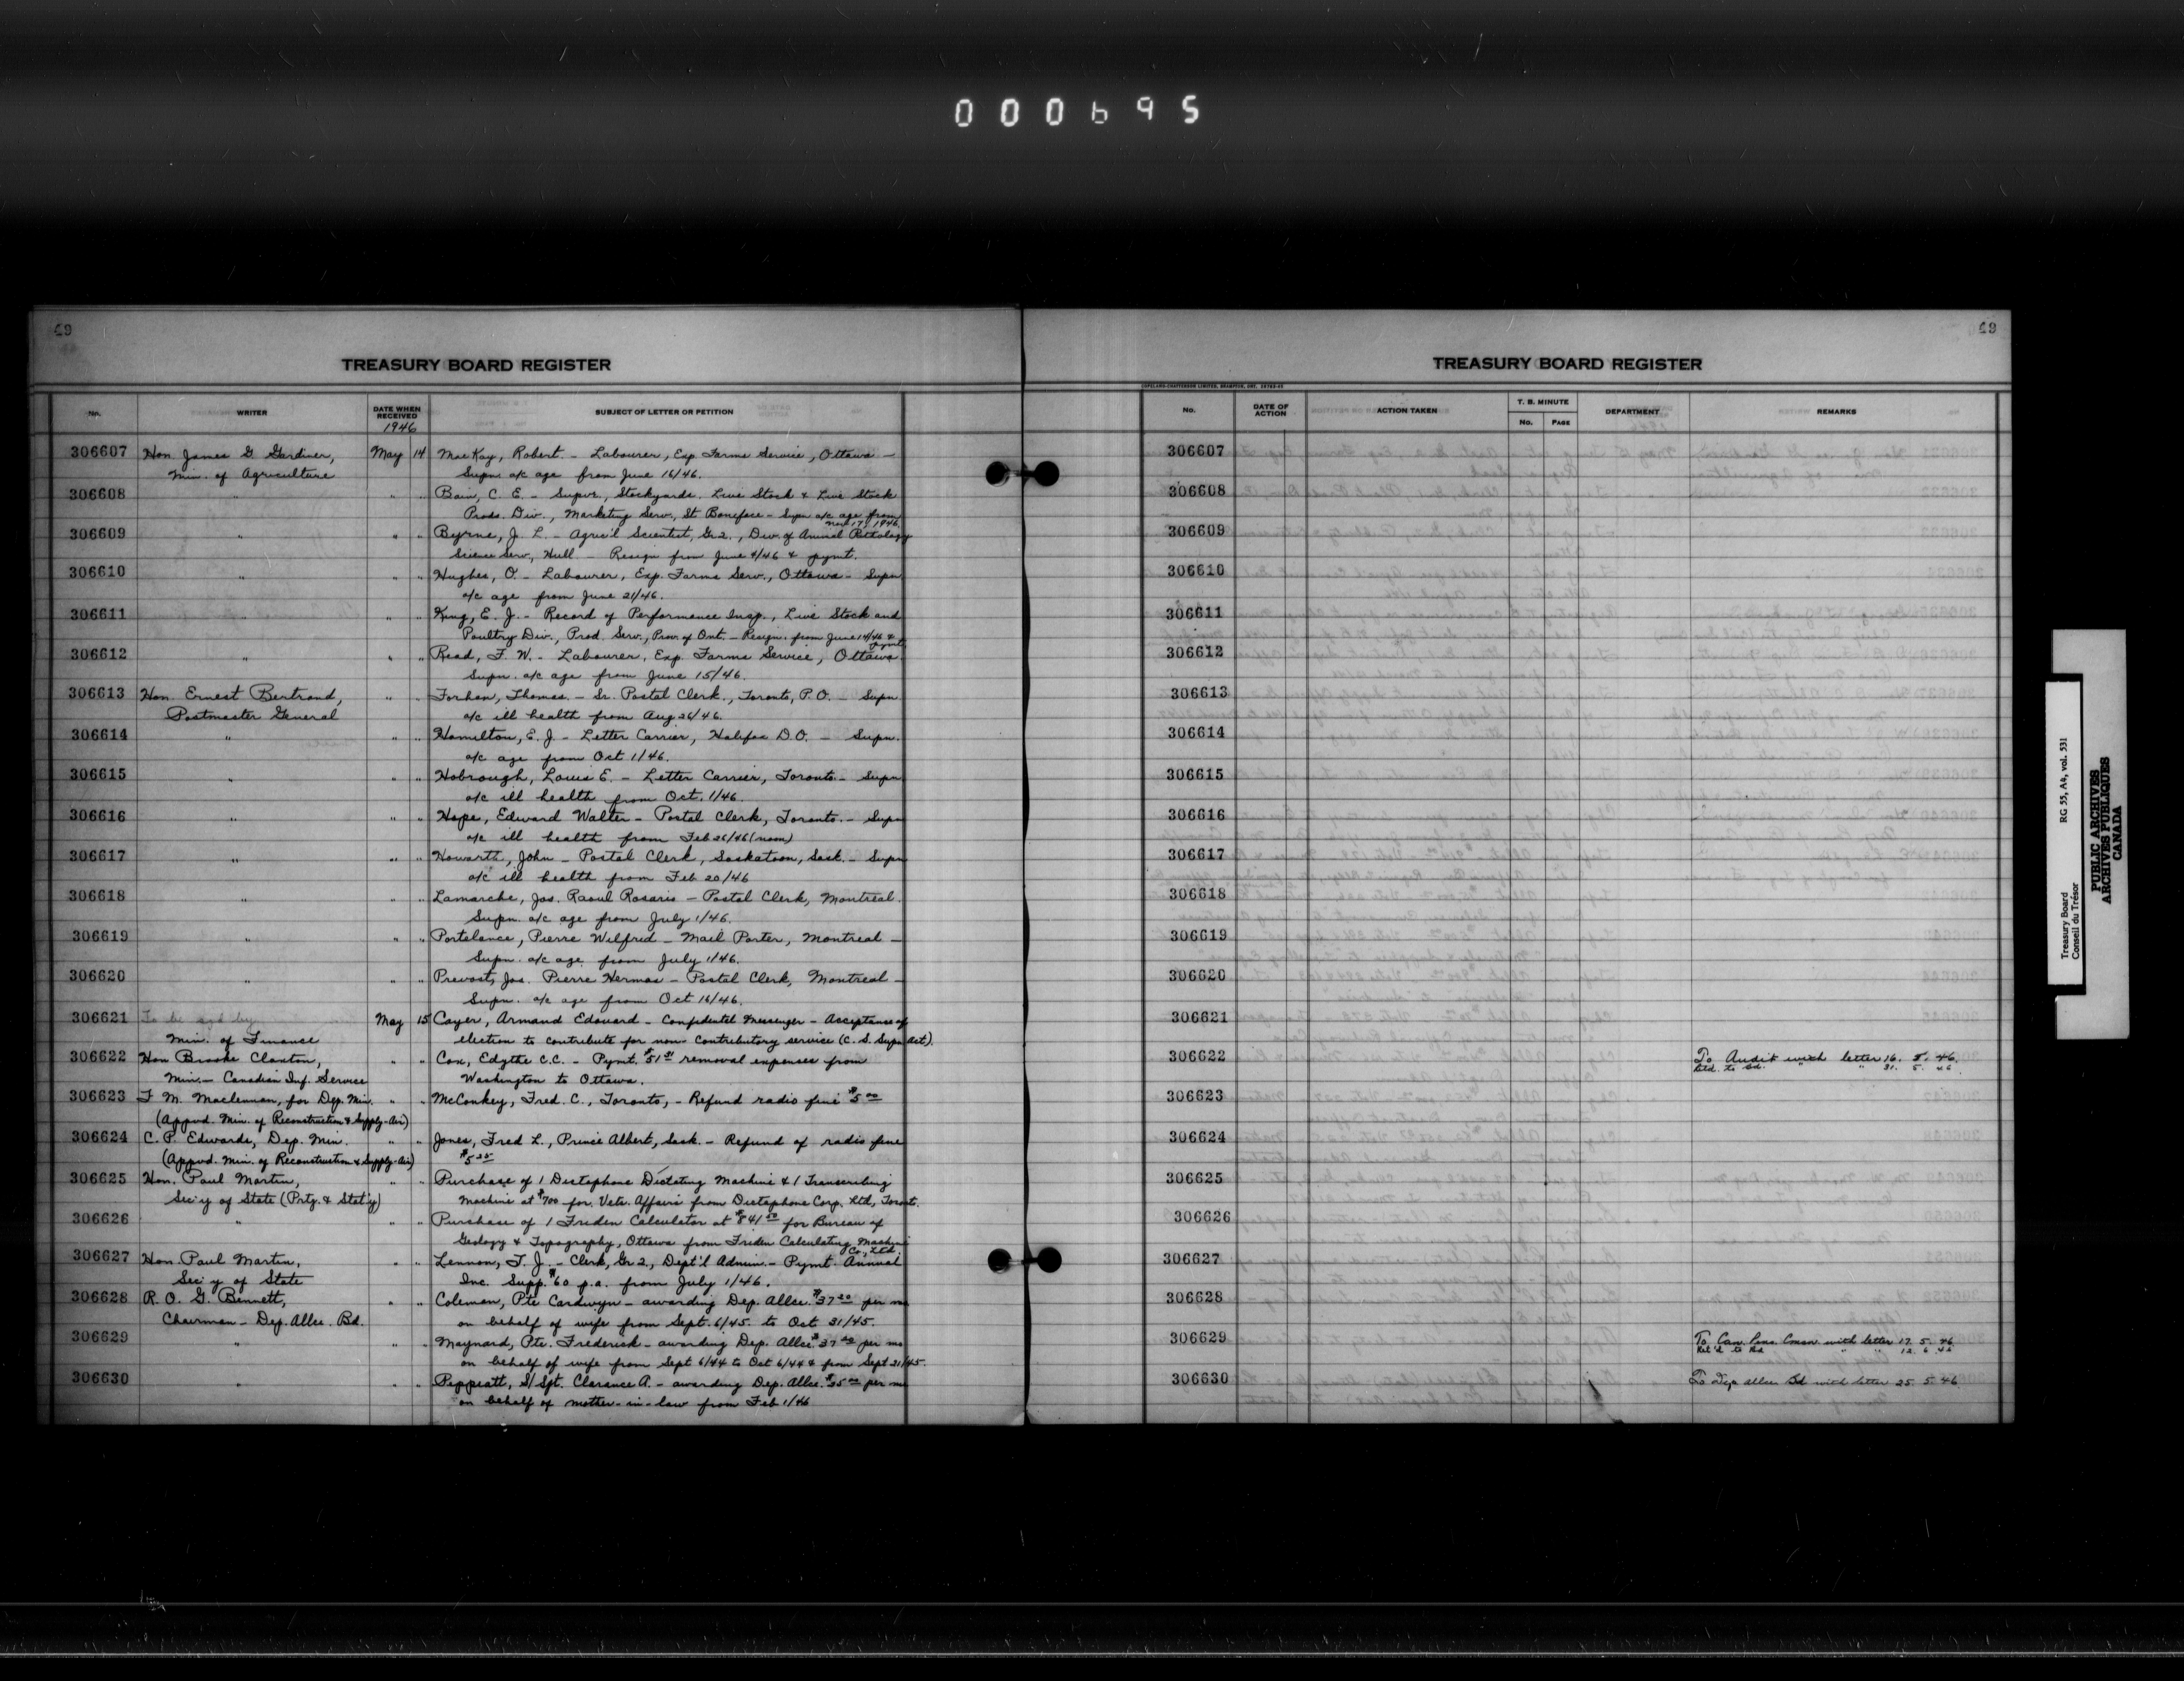 000695
69
TREASURY BOARD REGISTER
No. WRITER DATE WHEN RECEIVED SUBJECT OF LETTER OR PETITION
1946
306607 Hon. James G Gardiner, May 14 MacKay, Robert. - Labourer, Exp. Farms Service, Ottawa -
Min. of Agriculture Supn. a/c age from June 16/46.
306608 " " " Bain, C. E. - Supvr., Stockyards, Live Stock & Live Stock
Prods. Div., Marketing Serv., St Boniface - Supn a/c age from
Nov 17, 1946.
306609 " " " Byrne, J. L. - Agric'l Scientist, Gr 2., Div. of Animal Pathology
Science Serv., Hull - Resign from June 4/46 & pymt.
306610 " " " Hughes, O. - Labourer, Exp. Farms Serv., Ottawa - Supn
a/c age from June 21/46.
306611 " " " King, E. J. - Record of Performance Insp., Live Stock and
Poultry Div., Prod. Serv., Prov. of Ont. - Resign. from June 14/46 &
pymt.
306612 " " " Read, F. W. - Labourer, Exp. Farms Service, Ottawa.
Supn. a/c age from June 15/46.
306613 Hon. Ernest Bertrand, " " Forhan, Thomas. - Sr. Postal Clerk., Toronto, P.O. - Supn.
Postmaster General a/c ill health from Aug 26/46.
306614 " " " Hamilton, E. J. - Letter Carrier, Halifax D.O. - Supn.
a/c age from Oct 1/46.
306615 " " " Hobrough, Louis E. - Letter Carrier, Toronto. - Supn
a/c ill health from Oct. 1/46.
306616 " " " Hope, Edward Walter - Postal Clerk, Toronto. - Supn
a/c ill health from Feb 26/46 (noon)
306617 " " " Howarth, John - Postal Clerk, Saskatoon, Sask. - Supn
a/c ill health from Feb 20/46
306618 " " " Lamarche, Jos. Raoul Rosario - Postal Clerk, Montreal.
Supn. a/c age from July 1/46.
306619 " " " Portelance, Pierre Wilfred - Mail Porter, Montreal -
Supn. a/c age from July 1/46.
306620 " " " Prevost, Jos. Pierre Hermas - Postal Clerk, Montreal -
Supn. a/c age from Oct 16/46.
306621 To be sgd by May 15 Cayer, Armand Edouard - Confidental Messenger - Acceptance of
Min. of Finance election to contribute for non-contributory service (C. S. Supn Act).
306622 Hon Brooke Claxton, " " Cox, Edythe C.C. - Pymt. $51 removal expenses from
Min. - Canadian Inf. Service Washington to Ottawa.
306623 F. M. Maclennan, for Dep. Min. " " McConkey, Fred. C., Toronto, - Refund radio fine $5 00
(Appvd. Min. of Reconstruction & Supply-Air)
306624 C. P. Edwards, Dep. Min. " " Jones, Fred L., Prince Albert, Sask. - Refund of radio fine
(Appvd. Min. of Reconstruction & Supply-Air) $5 25
306625 Hon. Paul Martin, " " Purchase of 1 Dictaphone Dictating Machine & 1 Transcribing
Sec'y of State (Prtg. & Stat'y) Machine at $700 for Vets. Affairs from Dictaphone Corp. Ltd, Toronto.
306626 " " " Purchase of 1 Friden Calculator at $841 50 for Bureau of
Geology & Topography, Ottawa from Friden Calculating Machine
Co. Ltd.
306627 Hon. Paul Martin, " " Lennon, T. J. - Clerk, Gr 2., Dept'l Admin. - Pymt. Annual
Sec'y of State Inc. Supp. $60 p.a. from July 1/46.
306628 R. O. G. Bennett, " " Coleman, Pte Cardwyn - awarding Dep. Allce. $37 20 per mo
Chairman - Dep. Allce. Bd. on behalf of wife from Sept. 6/45 to Oct 31/45.
306629 " " " Maynard, Pte. Frederick - awarding Dep. Allce $37 20 per mo
on behalf of wife from Sept 6/44 to Oct 6/44 & from Sept 21/45.
306630 " " " Peppiatt, S/Sgt. Clarence A. - awarding Dep. Allce. $35 00 per mo
on behalf of mother-in-law from Feb 1/46
69
TREASURY BOARD REGISTER
COPELAND-CHATTERSON LIMITED, BRAMPTON, ONT.
No. DATE OF ACTION ACTION TAKEN T. B. MINUTE No. PAGE DEPARTMENT REMARKS
306607
306608
306609
306610
306611
306612
306613
306614
306615
306616
306617
306618
306619
306620
306621
306622 To Audit with letter 16. 5. 46.
Retd. to Bd. " " 31. 5. 46.
306623
306624
306625
306626
306627
306628
306629 To Can. Pens. Cmsn with letter 17. 5. 46
Ret'd to Bd " " 12. 6. 46
306630 To Dep allce Bd with letter 25. 5 46
Treasury Board RG 55, A4, vol. 531
Conseil du Trésor
PUBLIC ARCHIVES
ARCHIVES PUBLIQUES
CANADA